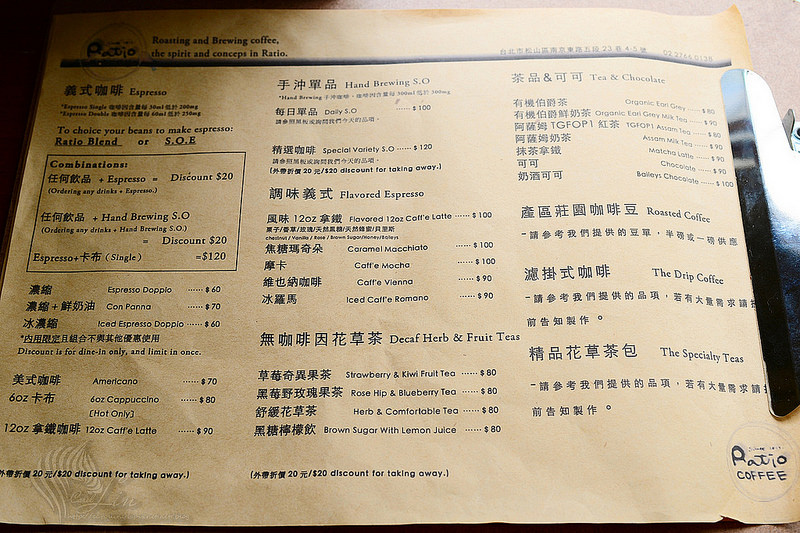 Ratio
Roasting and Brewing coffee,
the spirit and conceps in Ratio.
台北市松山區南京東路五段 23 巷 4-5 號 02 2766 0128
義式咖啡 Espresso
*Espresso Single 咖啡因含量每 30ml 低於 200mg
*Espresso Double 咖啡因含量每 60ml 低於 250mg
To choice your beans to make espresso:
Ratio Blend or S.O.E
Combinations:
任何飲品 + Espresso = Discount $20
(Ordering any drinks + Espresso.)
任何飲品 + Hand Brewing S.O
(Ordering any drinks + Hand Brewing S.O.)
= Discount $20
Espresso+卡布 (Single) =$120
濃縮 Espresso Doppio ------ $ 60
濃縮+鮮奶油 Con Panna ------ $ 70
冰濃縮 Iced Espresso Doppio ------ $ 60
*內用限定且組合不與其他優惠使用
Discount is for dine-in only, and limit in once.
美式咖啡 Americano ------ $ 70
6oz 卡布 6oz Cappuccino ------ $ 80
[Hot Only]
12oz 拿鐵咖啡 12oz Caff'e Latte ------ $ 90
(外帶折價 20 元/$20 discount for taking away.)
手沖單品 Hand Brewing S.O
*Hand Brewing 手沖咖啡，咖啡因含量每 300ml 低於 300mg.
每日單品 Daily S.O ------ $ 100
請參照黑板或詢問我們今天的品項。
精選咖啡 Special Variety S.O ------ $ 120
請參照黑板或詢問我們今天的品項。
(外帶折價 20 元/$20 discount for taking away.)
調味義式 Flavored Espresso
風味 12oz 拿鐵 Flavored 12oz Caff'e Latte ------ $ 100
栗子/香草/玫瑰/天然黑糖/天然蜂蜜/貝里斯
chestnut / Vanilla / Rose / Brown Sugar/Honey/Baileys
焦糖瑪奇朵 Caramel Macchiato ------ $ 100
摩卡 Caff'e Mocha ------ $ 100
維也納咖啡 Caff'e Vienna ------ $ 90
冰羅馬 Iced Caff'e Romano ------ $ 90
無咖啡因花草茶 Decaf Herb & Fruit Teas
草莓奇異果茶 Strawberry & Kiwi Fruit Tea ------ $ 80
黑莓野玫瑰果茶 Rose Hip & Blueberry Tea ------ $ 80
舒緩花草茶 Herb & Comfortable Tea ------ $ 80
黑糖檸檬飲 Brown Sugar With Lemon Juice ------ $ 80
(外帶折價 20 元/$20 discount for taking away.)
茶品&可可 Tea & Chocolate
有機伯爵茶 Organic Earl Grey ------ $ 80
有機伯爵鮮奶茶 Organic Earl Grey Milk Tea ------ $ 90
阿薩姆 TGFOP1 紅茶 TGFOP1 Assam Tea ------ $ 80
阿薩姆奶茶 Assam Milk Tea ------ $ 90
抹茶拿鐵 Matcha Latte ------ $ 90
可可 Chocolate ------ $ 90
奶酒可可 Baileys Chocolate ------ $ 100
產區莊園咖啡豆 Roasted Coffee
-請參考我們提供的豆單，半磅或一磅供應
濾掛式咖啡 The Drip Coffee
-請參考我們提供的品項，若有大量需求請
前告知製作。
精品花草茶包 The Specialty Teas
-請參考我們提供的品項，若有大量需求請
前告知製作。
Ratio
COFFEE